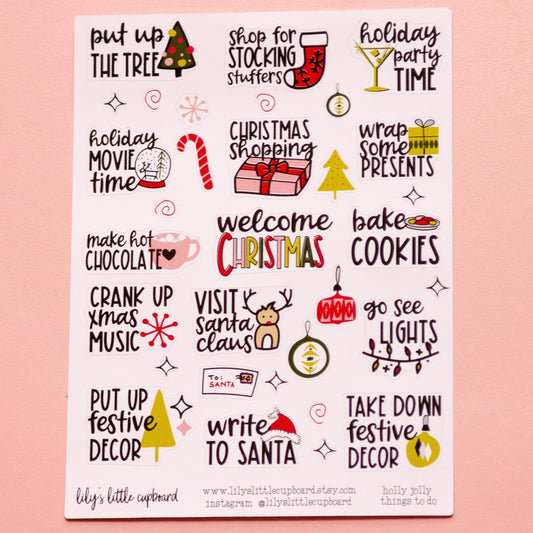 put up
THE TREE
shop for
STOCKING
stuffers
holiday
party
TIME
holiday
MOVIE
time
CHRISTMAS
shopping
wrap
some
PRESENTS
make hot
CHOCOLATE
welcome
CHRISTMAS
bake
COOKIES
CRANK UP
xmas
MUSIC
VISIT
santa
claus
go see
LIGHTS
TO:
SANTA
PUT UP
festive
DECOR
write
TO SANTA
TAKE DOWN
festive
DECOR
lily's little cupboard
www.lilyslittlecupboard.etsy.com
instagram @lilyslittlecupboard
holly jolly
things to do